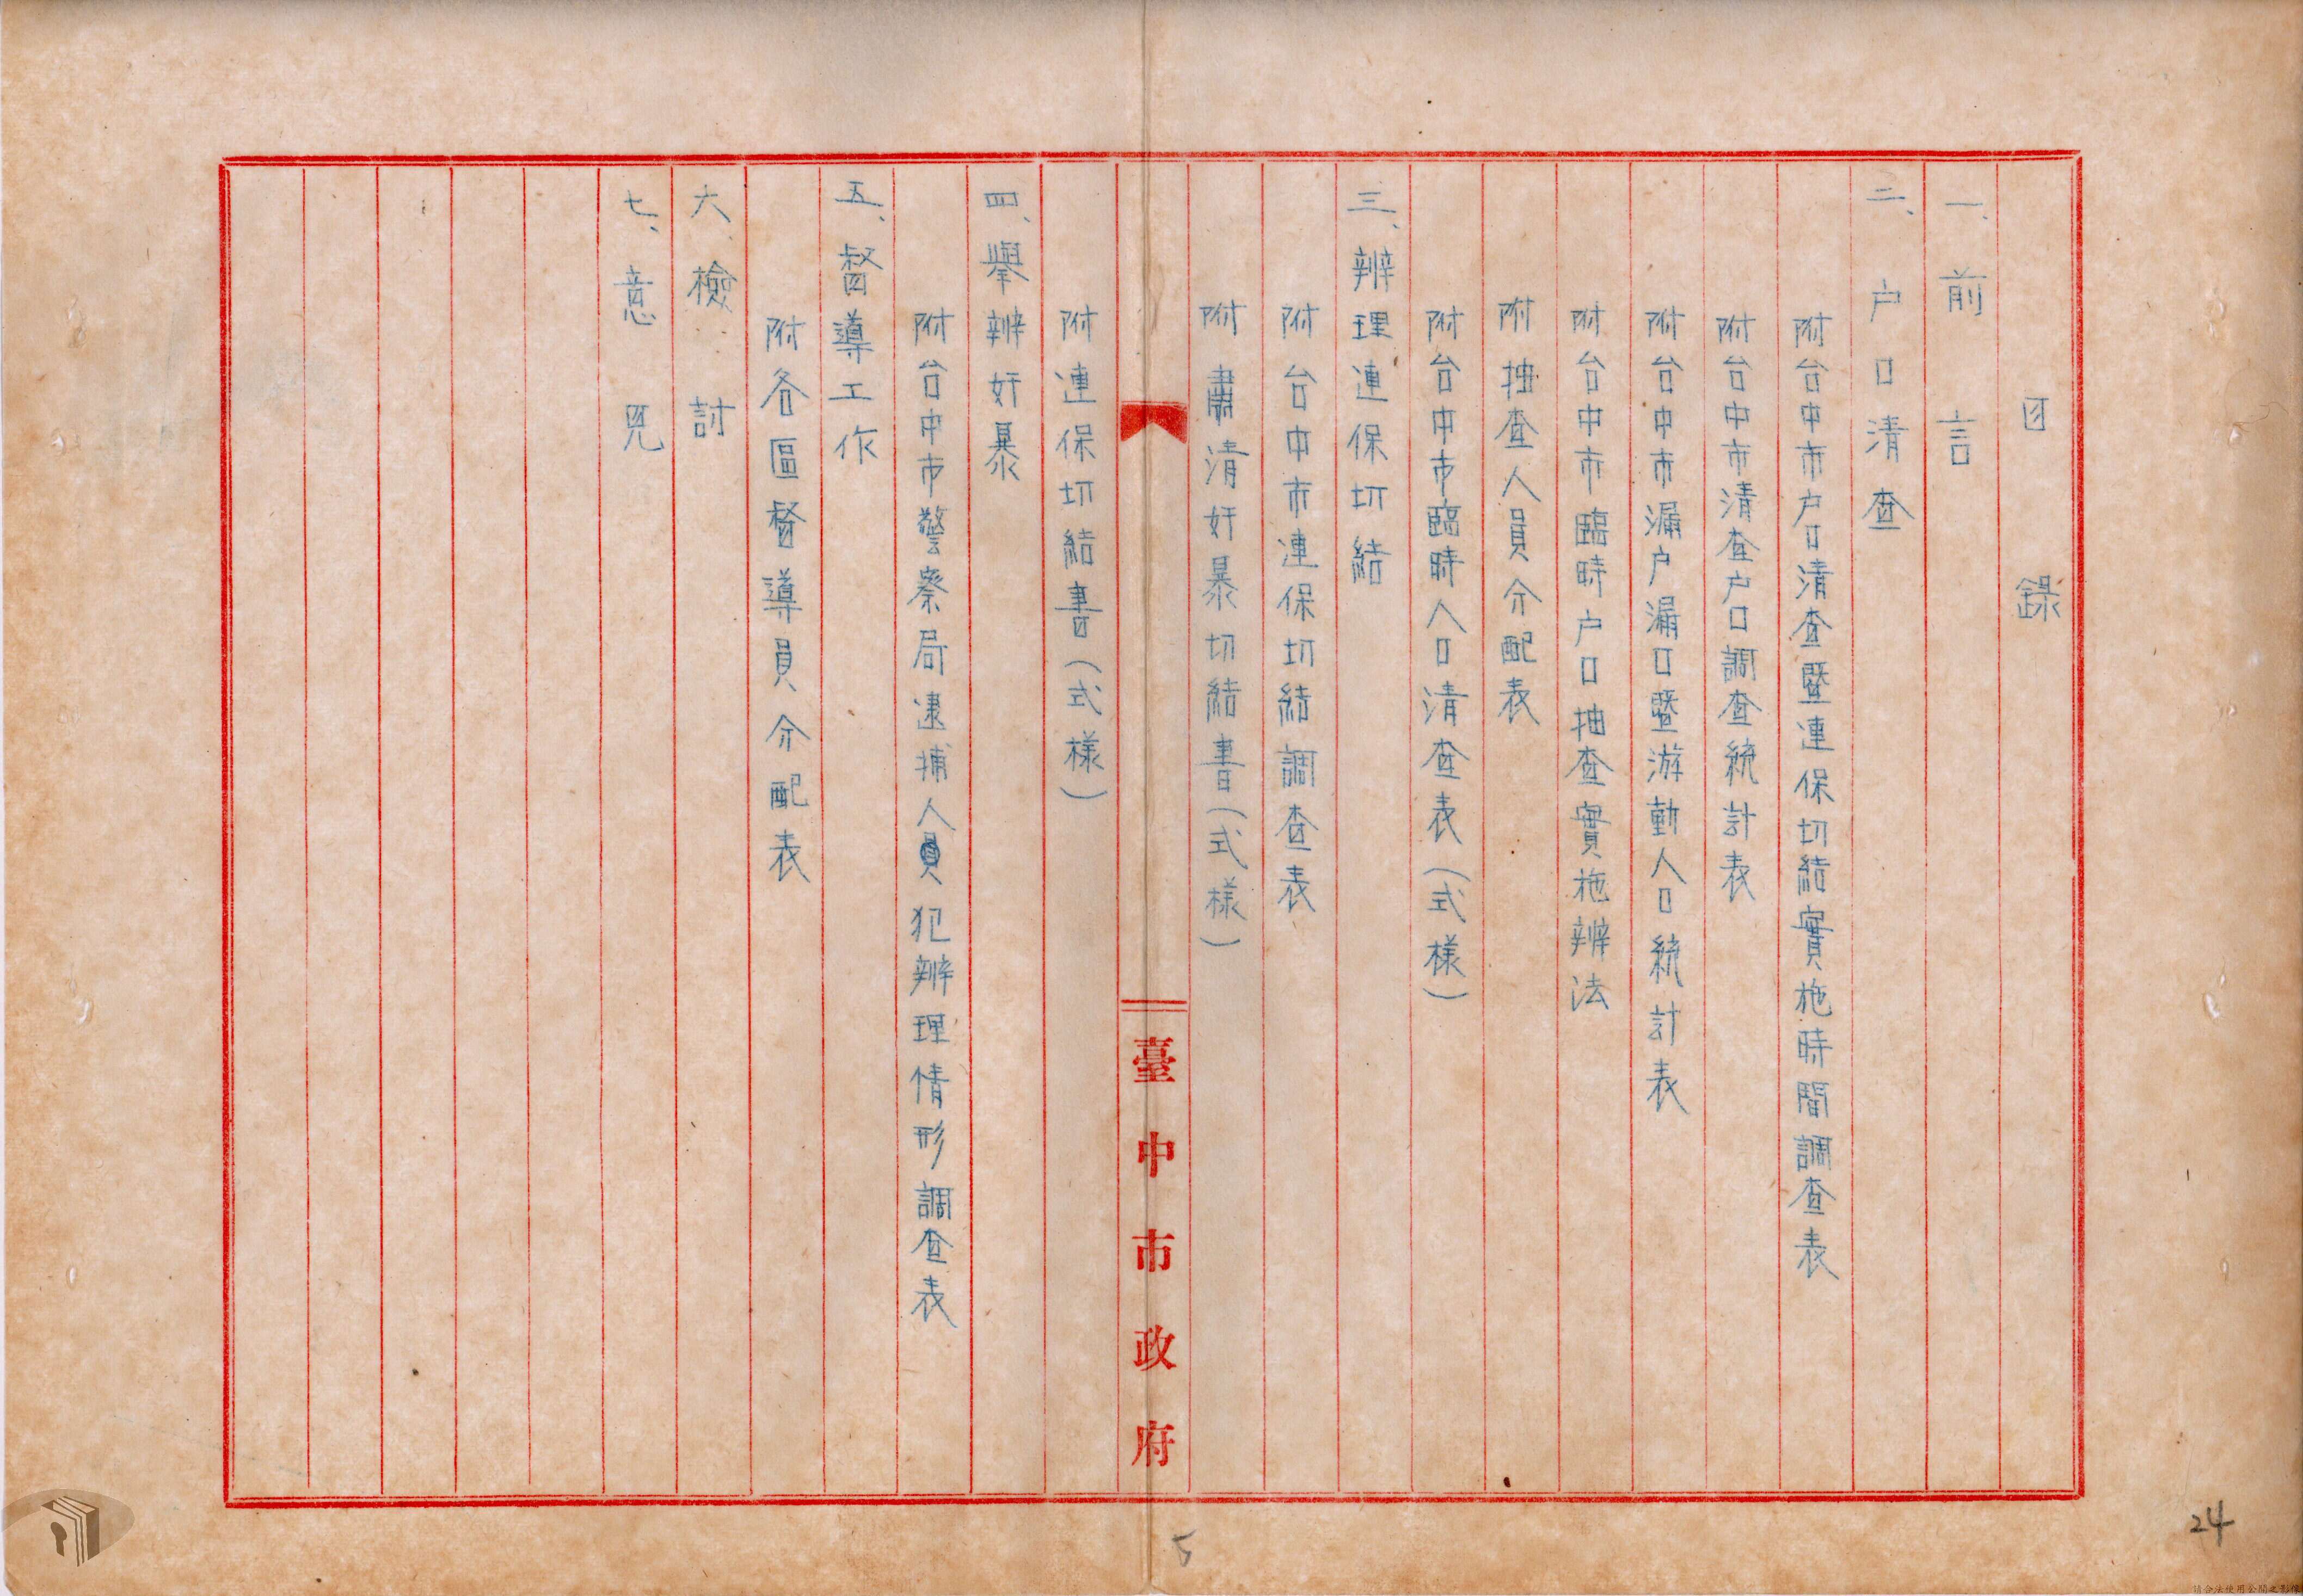 目錄
一、前言
二、户口清查
附台中市户口清查暨連保切結實施時間調查表
附台中市清查户口調查統計表
附台中市漏户漏口暨游動人口統計表
附台中市臨時户口抽查實施辦法
附抽查人員分配表
附台中市臨時人口清查表(式樣)
三、辦理連保切結
附台中市連保切結調查表
附肅清奸暴切結書(式樣)
臺中市政府
附連保切結書(式樣)
四、舉辦奸暴
附台中市警察局逮捕人員犯辦理情形調查表
五、督導工作
附各區督導員分配表
六、檢討
七、意見
5
24